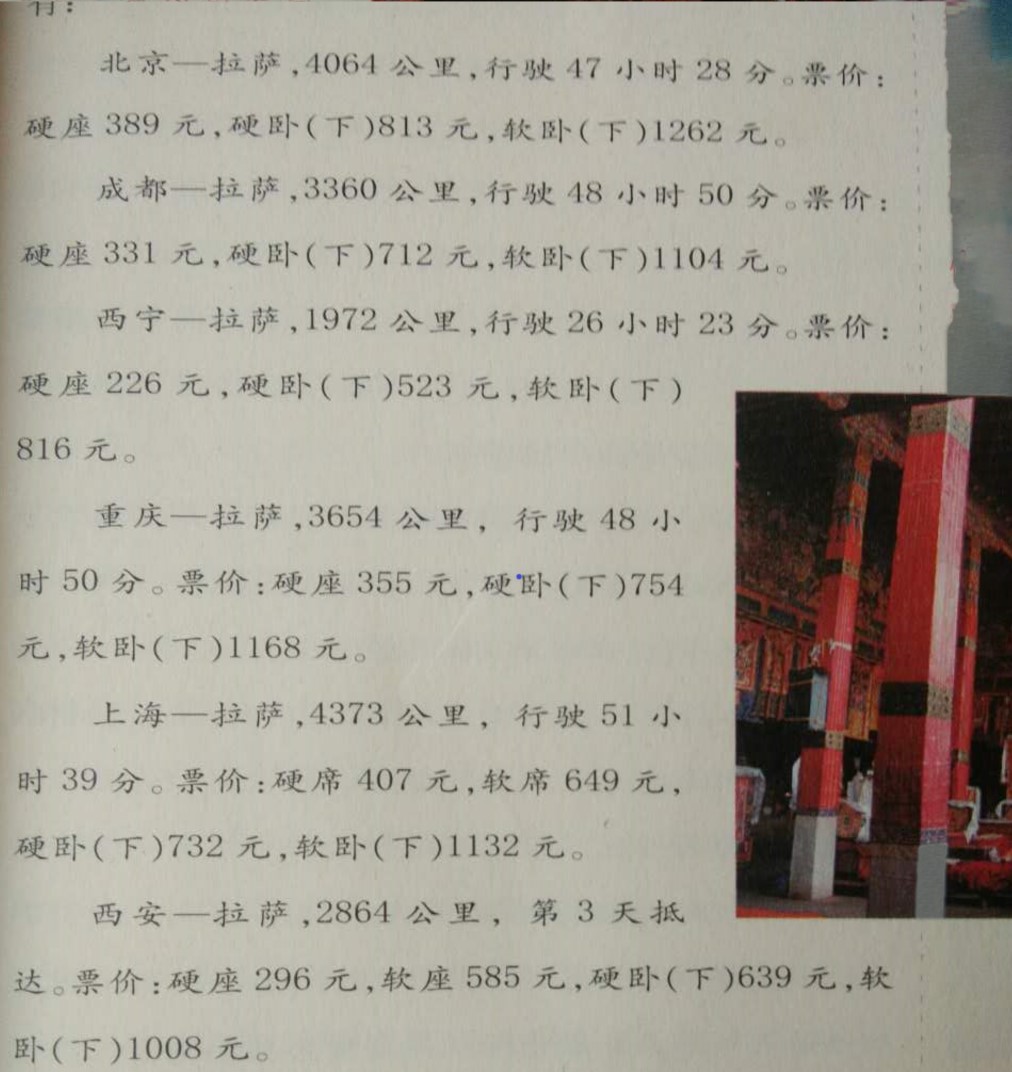 有：
北京—拉萨,4064公里,行驶47小时28分。票价:
硬座389元,硬卧(下)813元,软卧(下)1262元。
成都—拉萨,3360公里,行驶48小时50分。票价:
硬座331元,硬卧(下)712元,软卧(下)1104元。
西宁—拉萨,1972公里,行驶26小时23分。票价:
硬座226元,硬卧(下)523元,软卧(下)
816元。
重庆—拉萨,3654公里,行驶48小
时50分。票价:硬座355元,硬卧(下)754
元,软卧(下)1168元。
上海—拉萨,4373公里,行驶51小
时39分。票价:硬席407元,软席649元,
硬卧(下)732元,软卧(下)1132元。
西安—拉萨,2864公里,第3天抵
达。票价:硬座296元,软座585元,硬卧(下)639元,软
卧(下)1008元。